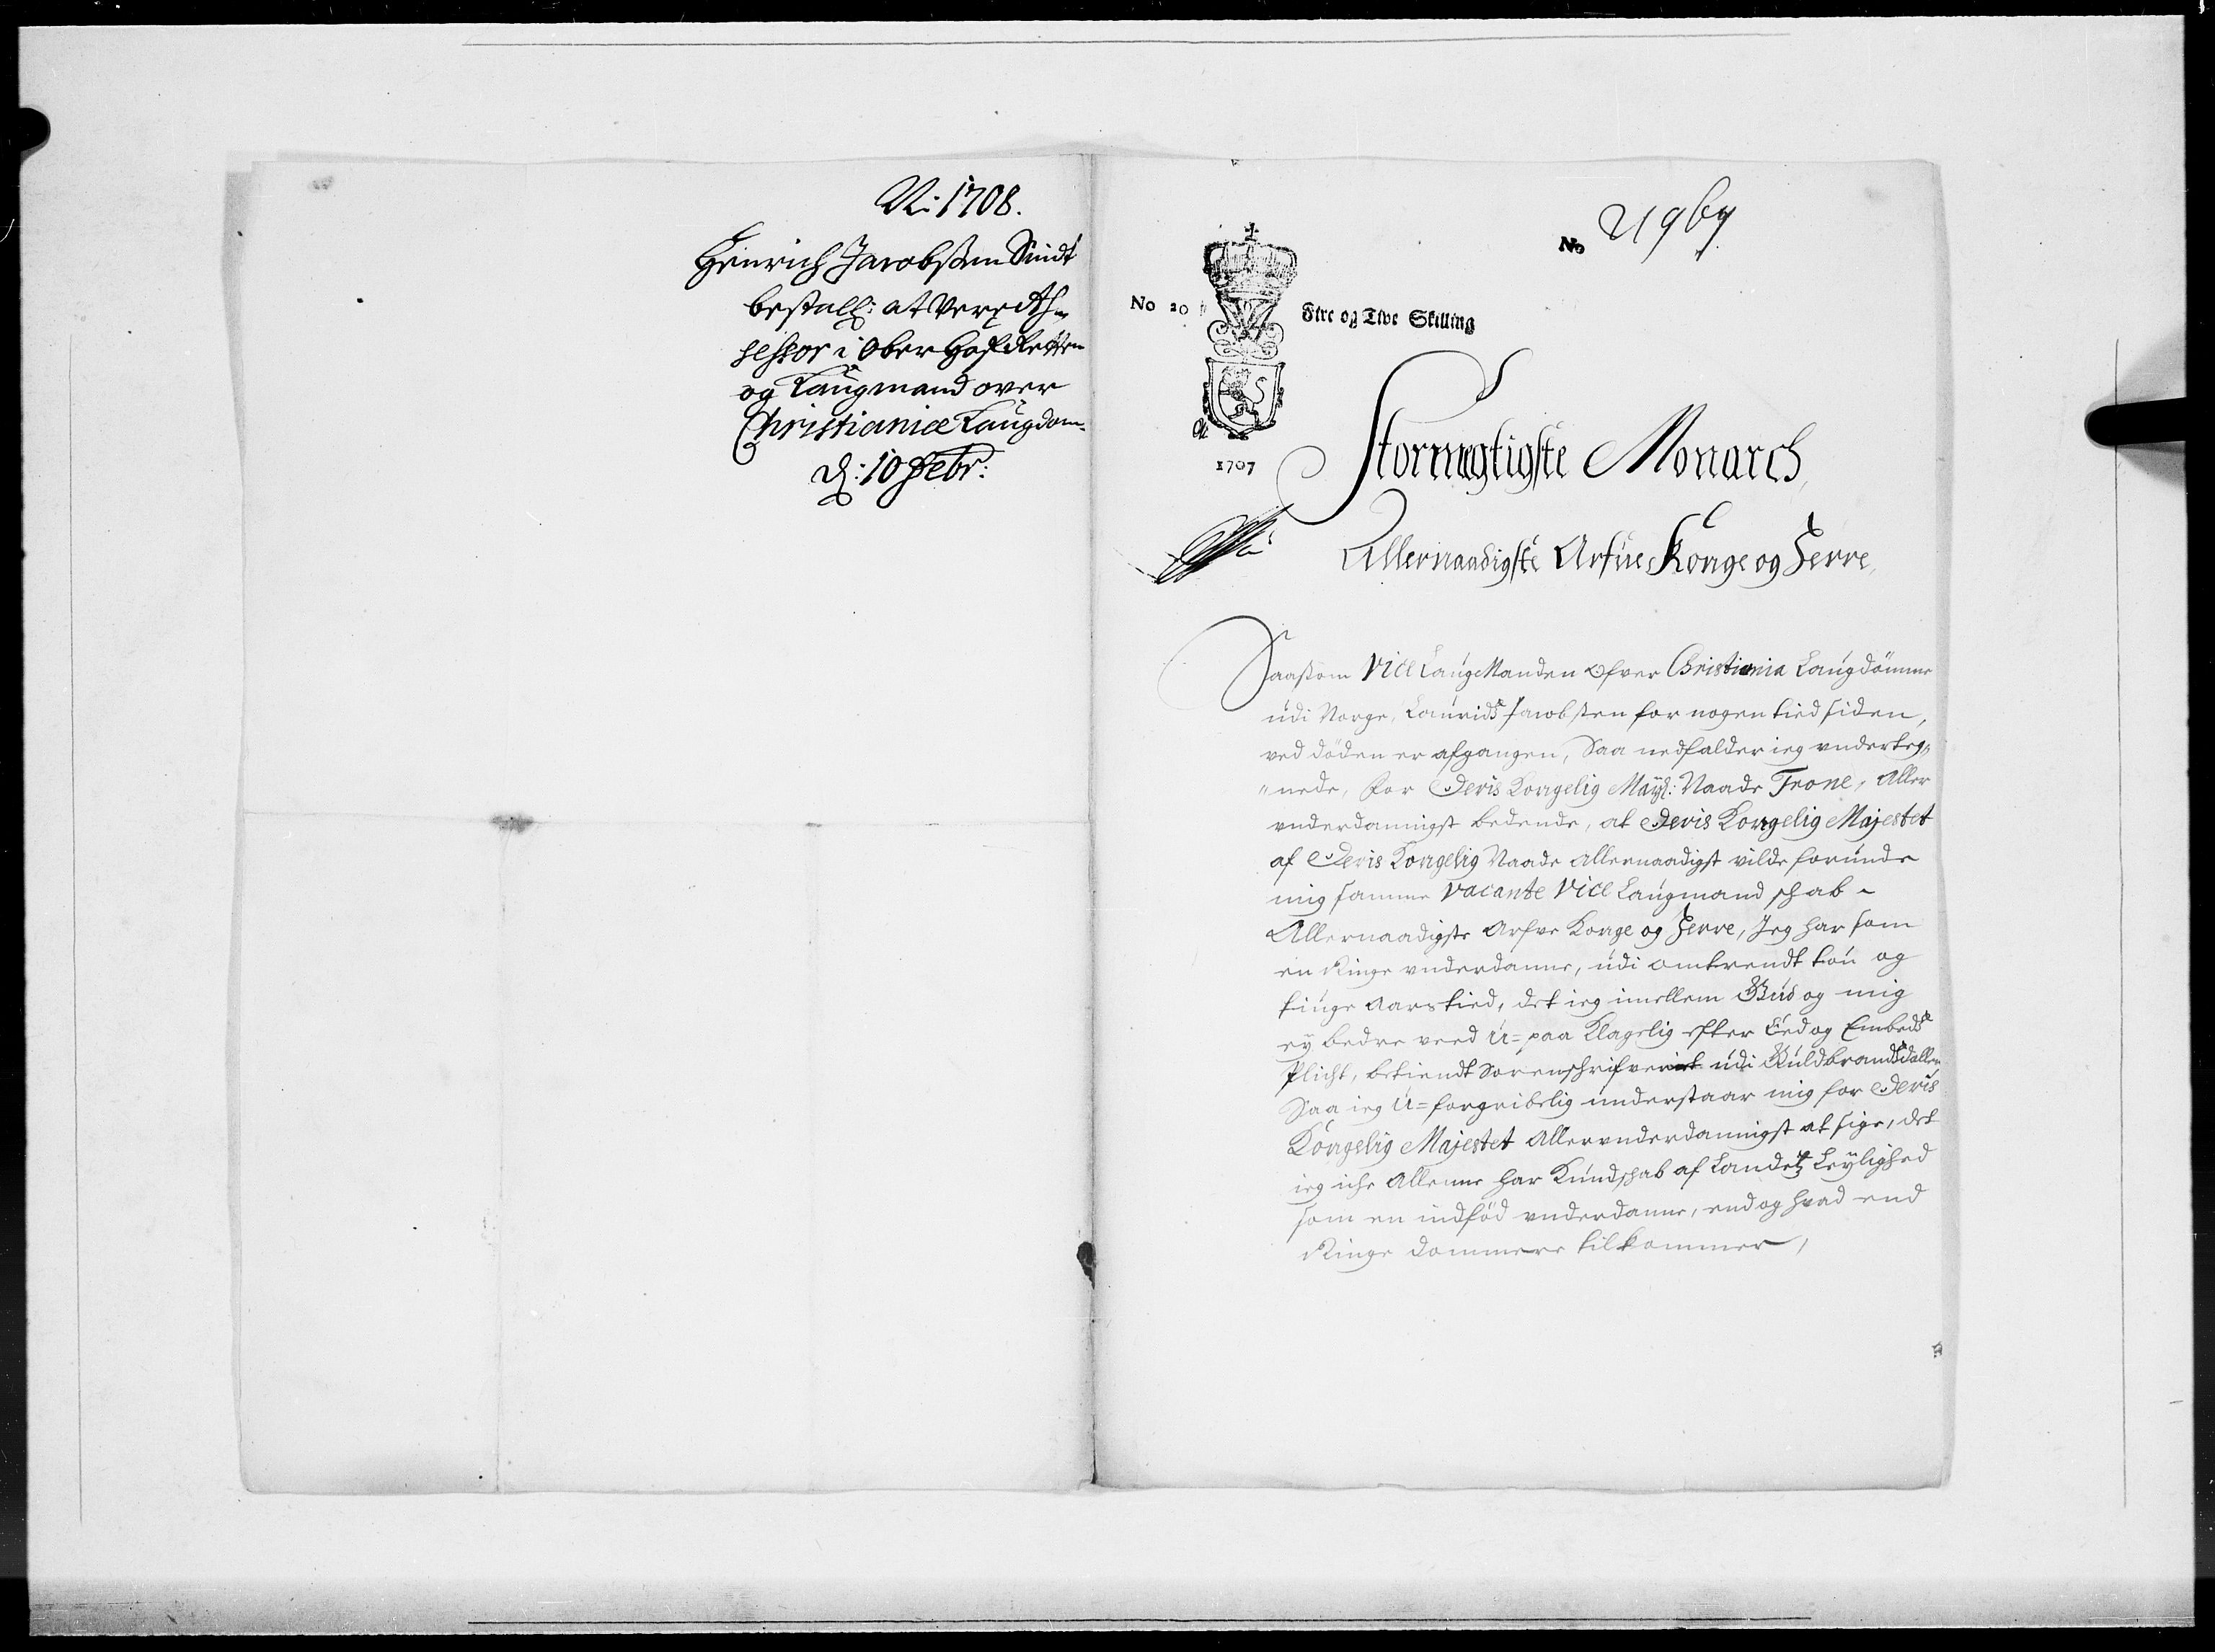 N: 1708.
Henrich Jacobssøn Sindt
bestall: at Være As¬
sessor i Ober Hof Retten
og Laugmand over
Christianiæ Laugdom.
d: 10 Febr:
No
No 20
Fire og Tive Skilling
1707
Stormegtigste Monarch,
Allernaadigste Arfve Konge og Herre,
Saasom Vice LaugManden Ofver Christiania Laugdömme
udi Norge, Laurids Jacobsen for nogen tied siden,
ved döden er afgangen, Saa nedfalder ieg underteg„
„nede, for Deris Kongelig Mayt: Naade Trone, Aller
underdannigst bedende, at Deris Kongelig Majestet
af Deris Kongelig Naade allernaadigst vilde forunde
mig samme vacante Vice Laugmandskab ~
Allernaadigste Arfve Konge og Herre, Jeg har som
en Ringe underdanne, udi omtrendt tou og
tiuge Aars tied, det ieg imellem Gud og mig
ey bedre veed u=paa Klagelig efter Eed og Embeds
Plicht, betiendt Sorenskrifveriet udi Guldbrandsdallen,
Saa ieg u=forgribelig understaar mig for Deris
Kongelig Majestet Allerunderdannigst at sige, det
ieg iche Allenne har Kundskab af Landetz Leylighed
som en indföd underdanne, end og hvad end
Ringe Dommere tilkommer,